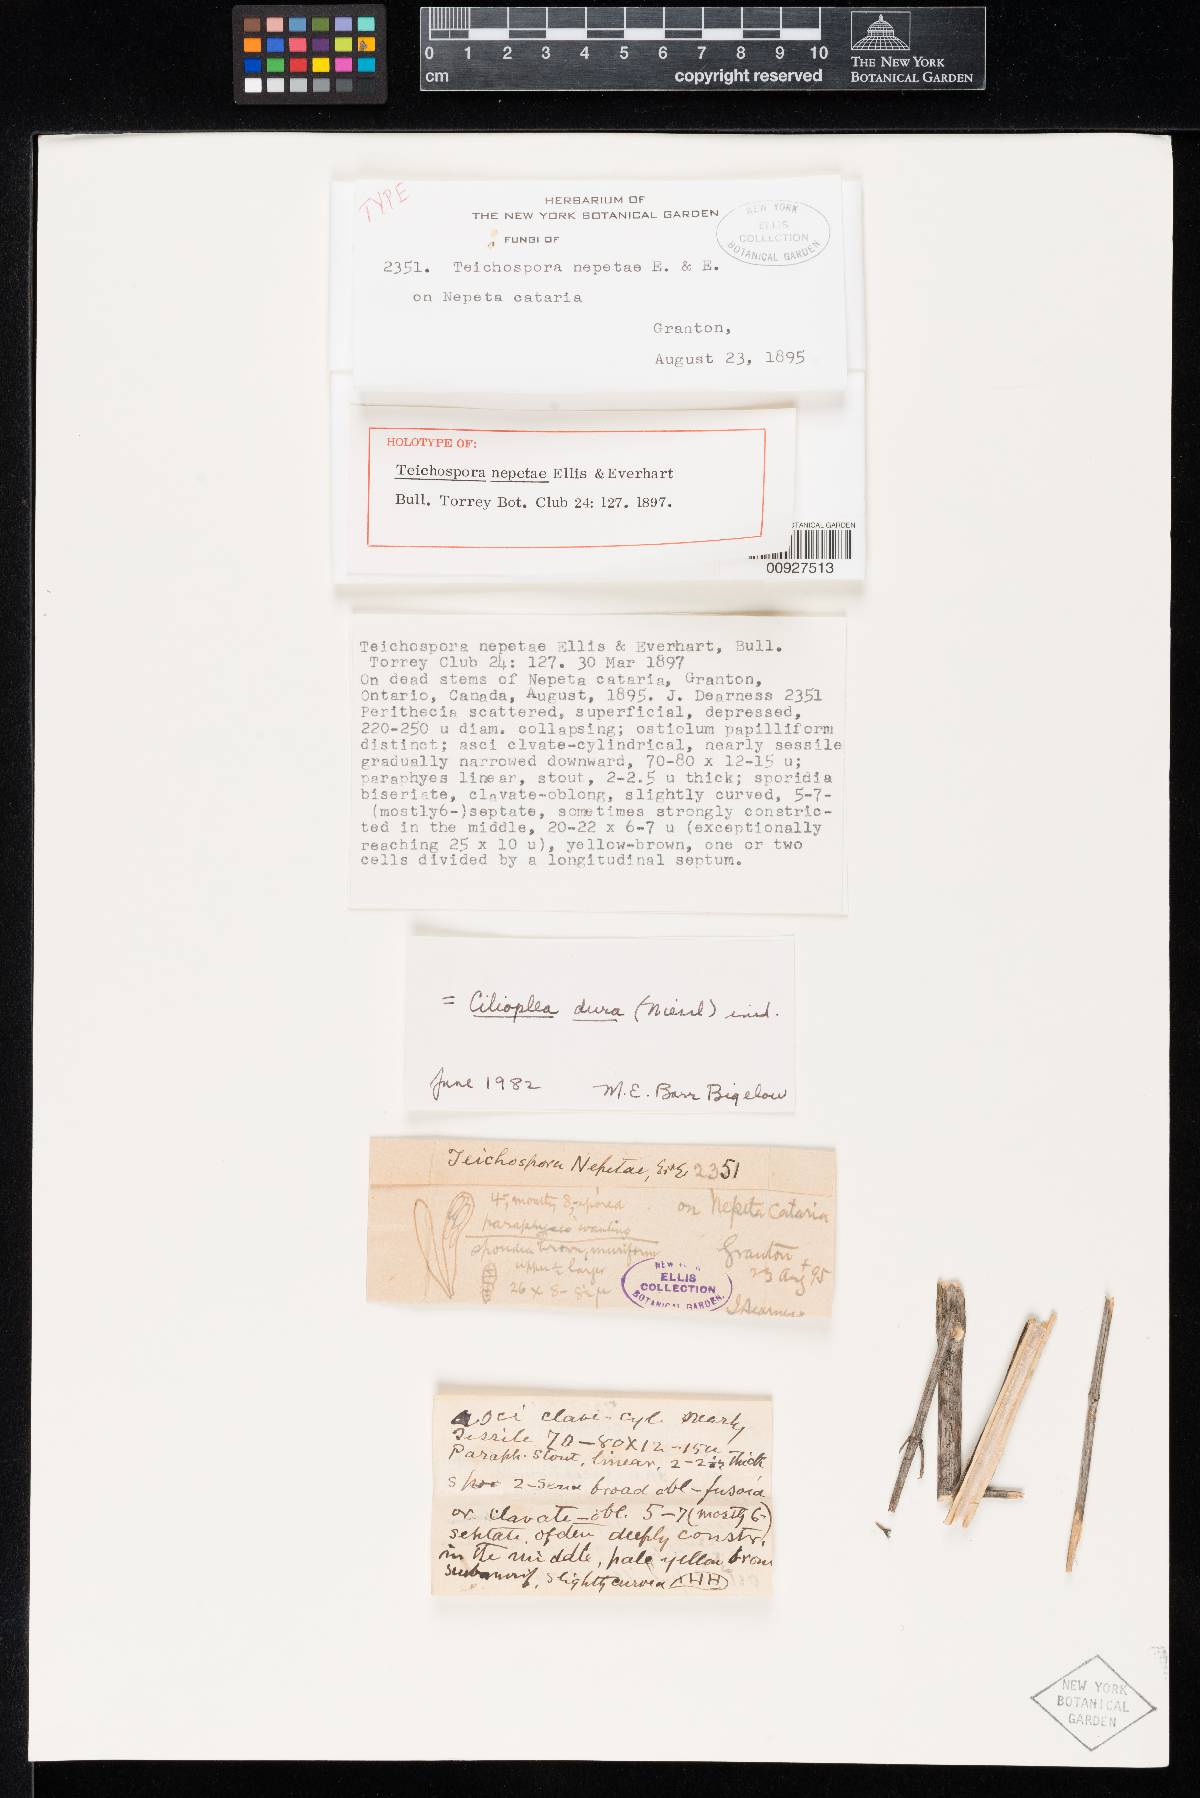 0 1 2 3 4 5 6 7 8 9 10
cm copyright reserved
THE NEW YORK
BOTANICAL GARDEN
TYPE
HERBARIUM OF
THE NEW YORK BOTANICAL GARDEN
FUNGI OF
NEW YORK
ELLIS
COLLECTION
BOTANICAL GARDEN
2351. Teichospora nepetae E. & E.
on Nepeta cataria
Granton,
August 23, 1895
HOLOTYPE OF:
Teichospora nepetae Ellis & Everhart
Bull. Torrey Bot. Club 24: 127. 1897.
OTANICAL GARDEN
00927513
Teichospora nepetae Ellis & Everhart, Bull.
Torrey Club 24: 127. 30 Mar 1897
On dead stems of Nepeta cataria, Granton,
Ontario, Canada, August, 1895. J. Dearness 2351
Perithecia scattered, superficial, depressed,
220-250 u diam. collapsing; ostiolum papilliform
distinct; asci clvate-cylindrical, nearly sessile
gradually narrowed downward, 70-80 x 12-15 u;
paraphyes linear, stout, 2-2.5 u thick; sporidia
biseriate, clavate-oblong, slightly curved, 5-7-
(mostly6-)septate, sometimes strongly constric-
ted in the middle, 20-22 x 6-7 u (exceptionally
reaching 25 x 10 u), yellow-brown, one or two
cells divided by a longitudinal septum.
= Cilioplea dura (Niessl) ined.
June 1982 M.E. Barr Bigelow
Teichospora Nepetae, E&E 2351
4, mostly 8, spored
paraphyses wanting
sporidia brown, muriform
upper ½ larger
26 x 8-8½ µ
on Nepeta Cataria
Granton
23 Aug 95
J Dearness
NEW
ELLIS
COLLECTION
BOTANICAL GARDEN.
asci clavi-cyl. nearly
sessile 70-80X12-15u
Paraph. stout, linear, 2-2½ thick
spor 2-seria broad obl-fusoid
or clavate-obl. 5-7(mostly 6-)
septate, often deeply constr.
in the middle, pale yellow brown
submurif, slightly curved
NEW YORK
BOTANICAL
GARDEN